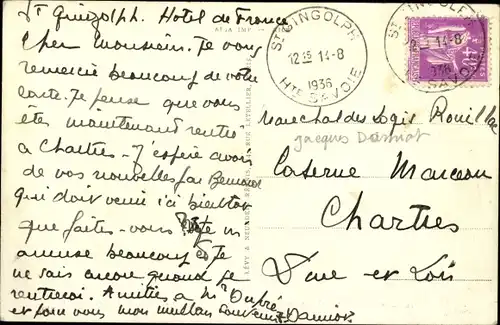 St Gingolph. Hotel de France
Cher Monsieur. Je vous
remercie beaucoup de votre
carte. Je pense que vous
êtes maintenant rentré
a Chartres - J'espère avoir
de vos nouvelles par Bernard
qui doit venir ici bientôt
que faites-vous
amuse beaucoup et Je
ne sais encore quand je
rentrerai. Amitiés a Mr Dupré
et pour vous mon meilleur souvenir
ST GINGOLPH
12 15 14-8
1936
HTE SAVOIE
ST GINGOLPH
14-8
1936
SAVOIE
Marechal des Logis Rouillac
Jacques
Caserne Marceau
Chartres
Eure et Loir